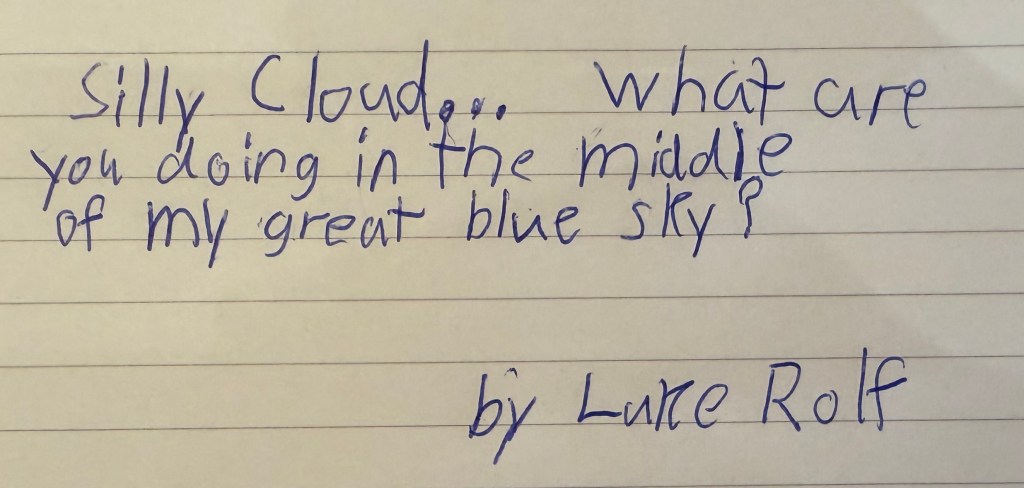 Silly Cloud... What are
you doing in the middle
of my great blue sky?
by Luke Rolf